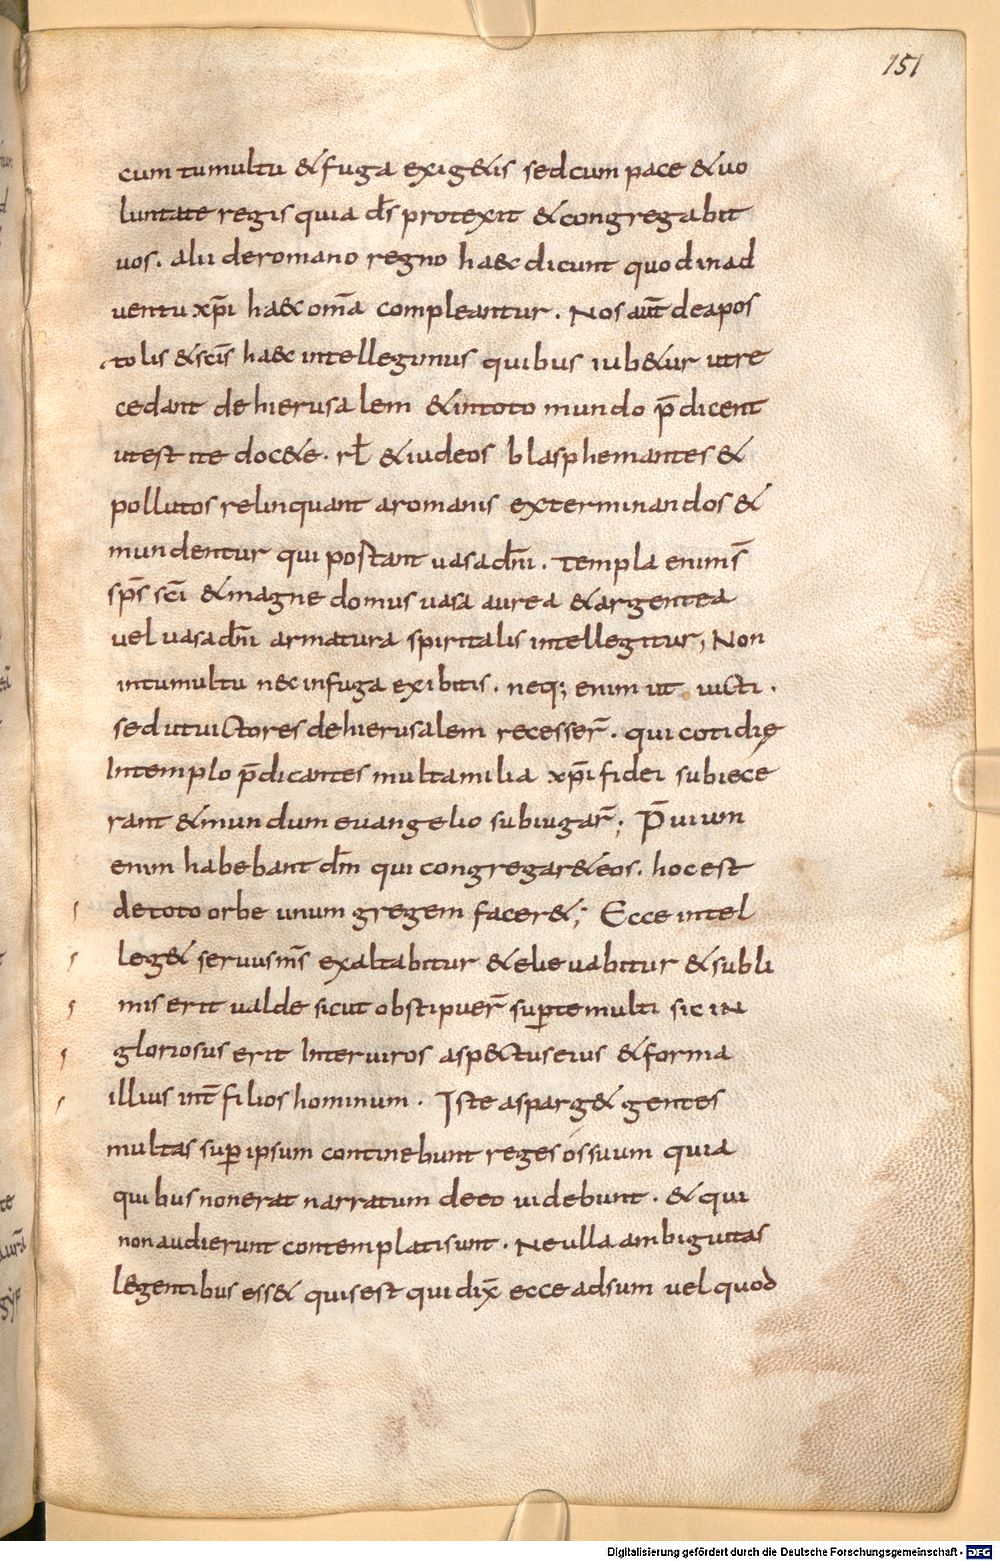 151
cum tumultu & fuga exig&is sed cum pace & uo
luntate regis quia ds̄ protexit & congregabit
uos. alii deromano regno haec dicunt quod inad
uentu xp̄i haec om̄a compleantur. Nos aut̄ deapos
tolis & sc̄is haec intellegimus quibus iub&ur utre
cedant dehierusalem & intoto mundo p̄dicent
utest ite doc&e. rł & iudeos blasphemantes &
pollutos relinquant aromanis exterminandos &
mundentur qui postant uasadn̄i. templa enims̄
sp̄s sc̄i & magne domus uasa aurea & argentea
uel uasadn̄i armatura spiritalis intellegitur, Non
intumultu nec infuga exibitis. neq; enim ut uicti.
sed utuictores dehierusalem recesser̄. qui cotidie
Intemplo p̄dicantes multamilia xp̄i fidei subiece
rant & mundum euangelio subiugar̄; P̄uium
enim habebant dn̄m qui congregar&eos. hoc est
detoto orbe unum gregem facer&; Ecce intel
leg& seruusm̄s exaltabitur & eleuabitur & subli
mis erit ualde sicut obstipuer̄ sup̄te multi sic in
gloriosus erit Interuiros asp&tuseius & forma
illius int̄ filios hominum. Iste asparg& gentes
multas sup̄ ipsum continebunt reges ós suum quia
quibus nonerat narratum deeo uidebunt. & qui
nonaudierunt contemplatisunt. Neulla ambiguitas
legentibus ess& quisest qui dix̄ ecce adsum uel quod
Digitalisierung gefördert durch die Deutsche Forschungsgemeinschaft - DFG